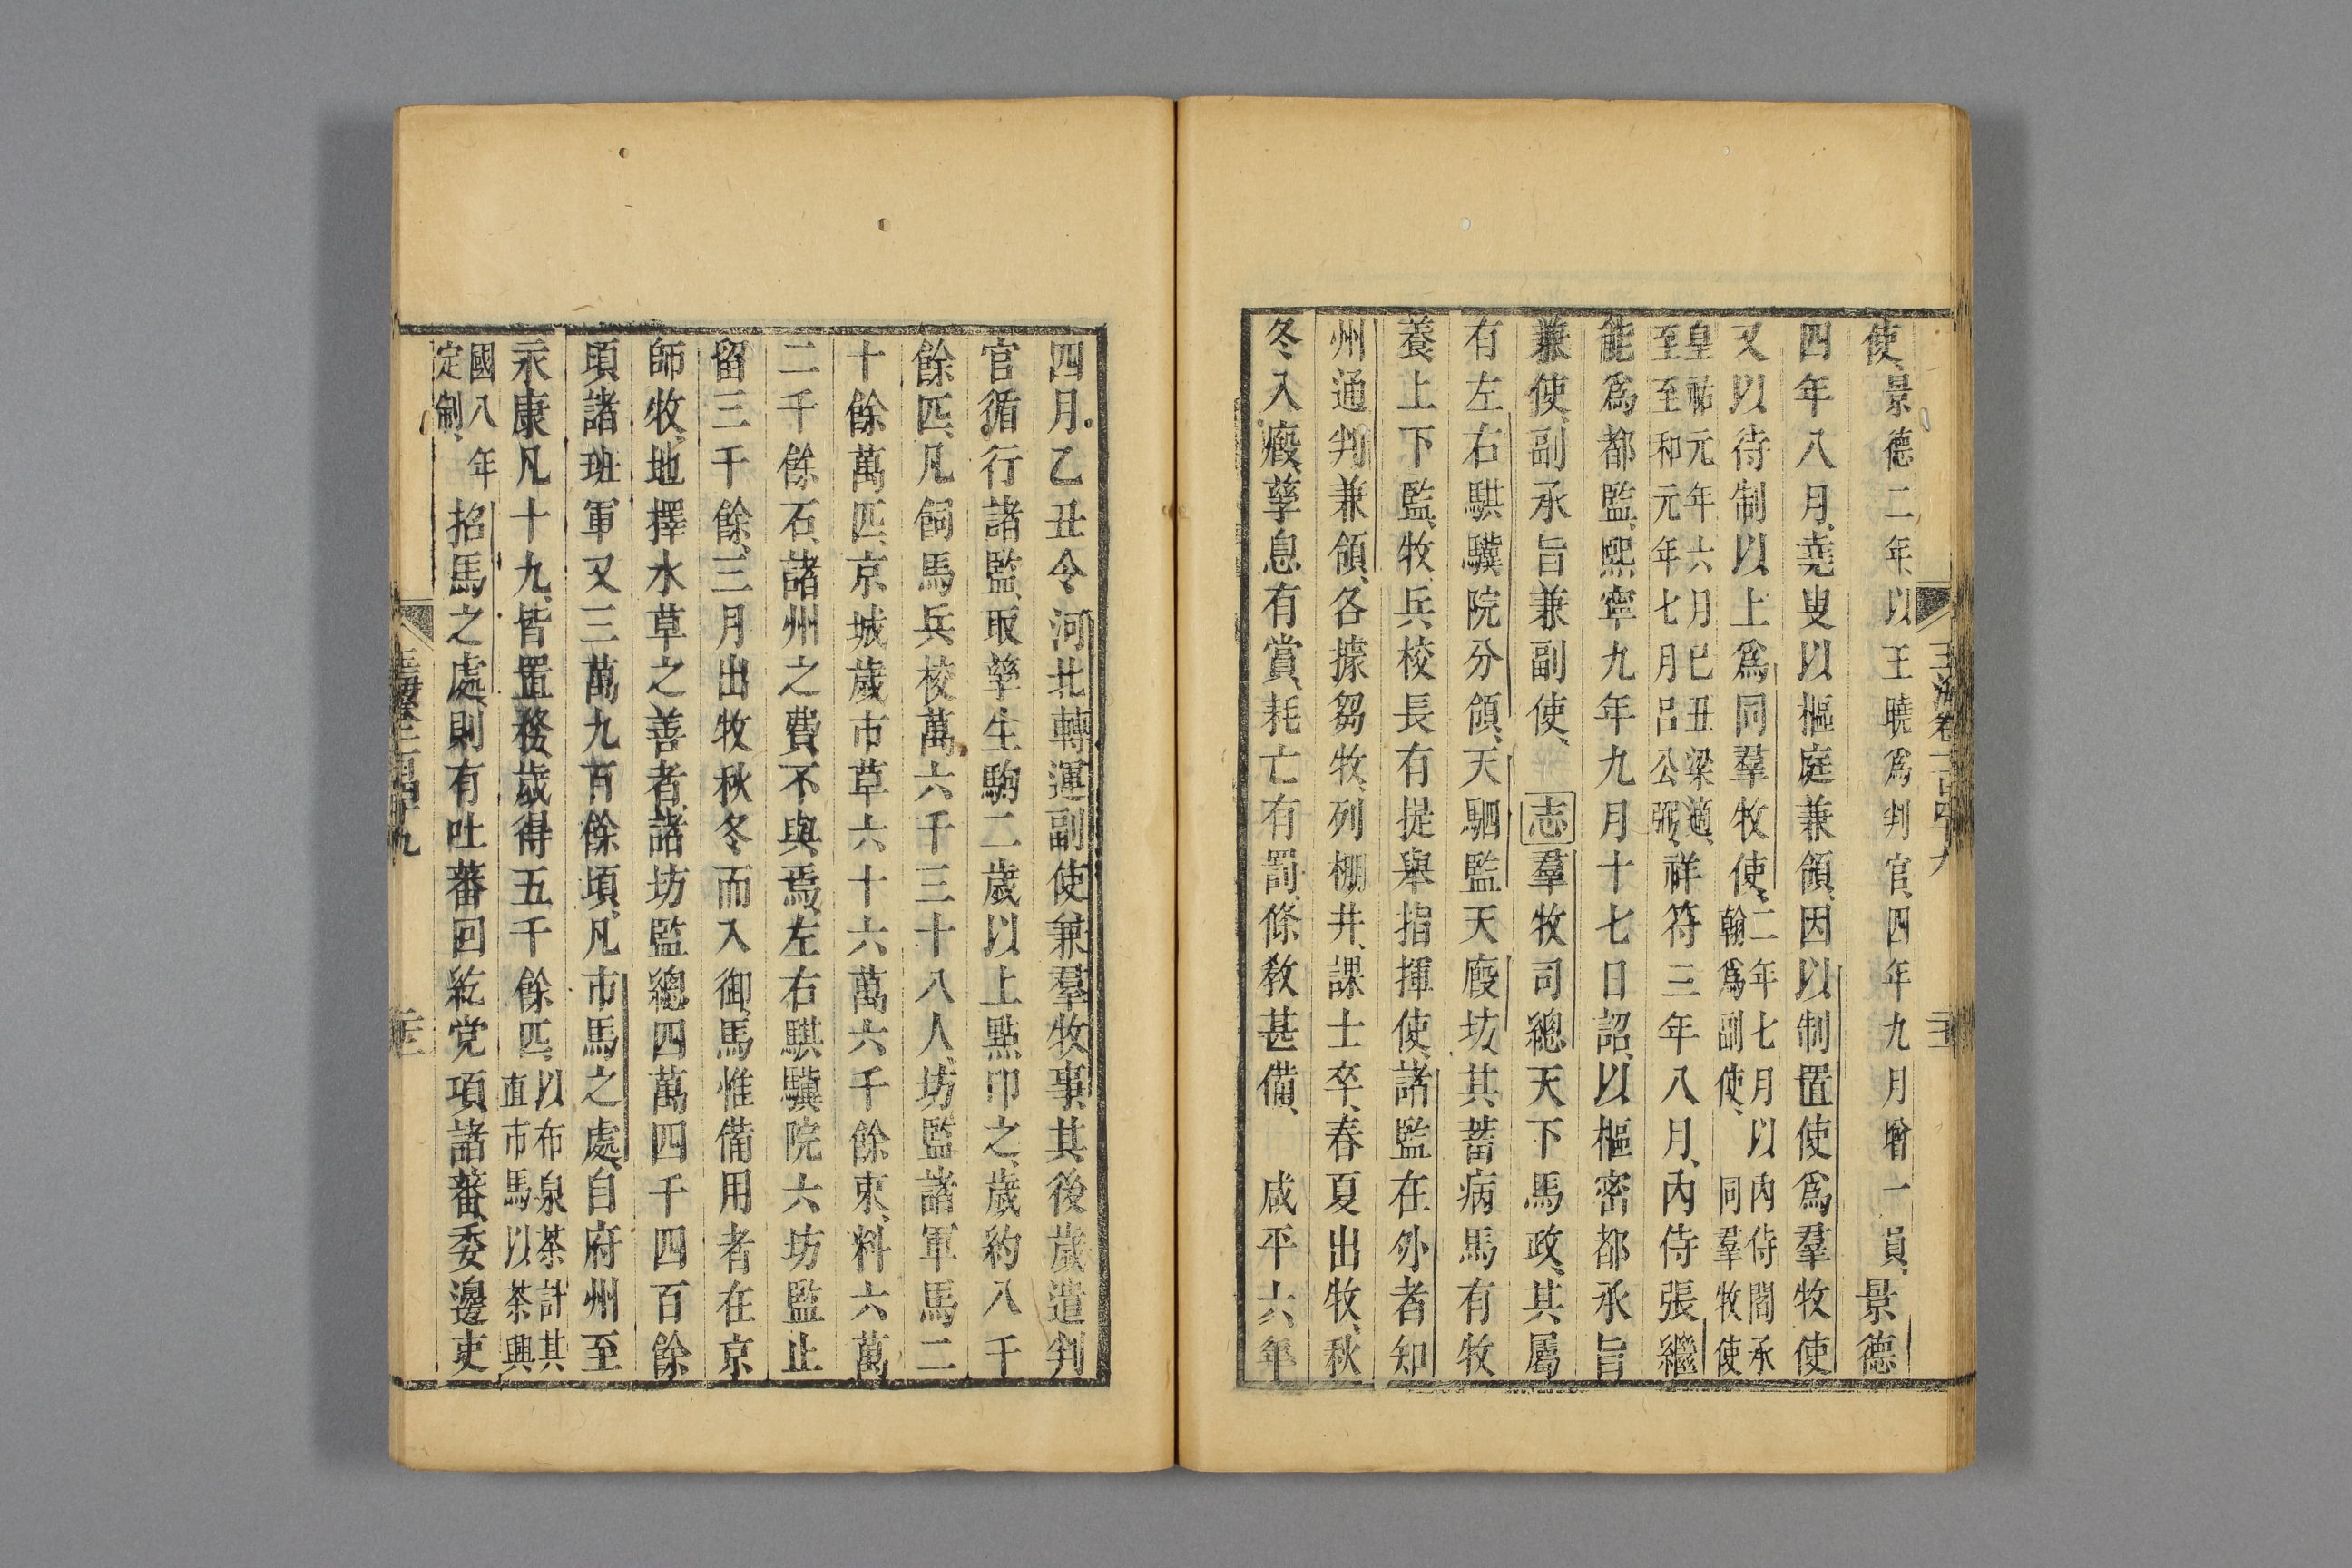 使景德二年以王曉爲判官四年九月增一員景德
四年八月堯叟以樞庭兼領因以制置使爲羣牧使
又以待制以上爲同羣牧使二年七月以内侍閻承翰爲副使同羣牧使
皇祐元年六月已丑梁適至至和元年七月呂公弼祥符三年八月内侍張繼
能爲都監熙寧九年九月十七日詔以樞密都承旨
兼使副承旨兼副使志羣牧司總天下馬政其屬
有左右騏驥院分領天駟監天廄坊其蓄病馬有牧
養上下監牧兵校長有提舉指揮使諸監在外者知
州通判兼領各據芻牧列棚井課士卒春夏出牧秋
冬入廄孳息有賞耗亡有罰條敎甚備 咸平六年
玉海卷一百四十九
四月乙丑令河北轉運副使兼羣牧事其後歲遣判
官循行諸監取孳生駒二歲以上點印之歲約八千
餘匹凡飼馬兵校萬六千三十八人坊監諸軍馬二
十餘萬匹京城歲市草六十六萬六千餘束料六萬
二千餘石諸州之費不與焉左右騏驥院六坊監止
留三千餘三月出牧秋冬而入御馬惟備用者在京
師牧地擇水草之善者諸坊監總四萬四千四百餘
頃諸班軍又三萬九百餘頃凡市馬之處自府州至
永康凡十九皆置務歲得五千餘匹以布泉茶計其直市馬以茶興
國八年定制招馬之處則有吐蕃回紇党項諸蕃委邊吏
玉海卷一百四十九